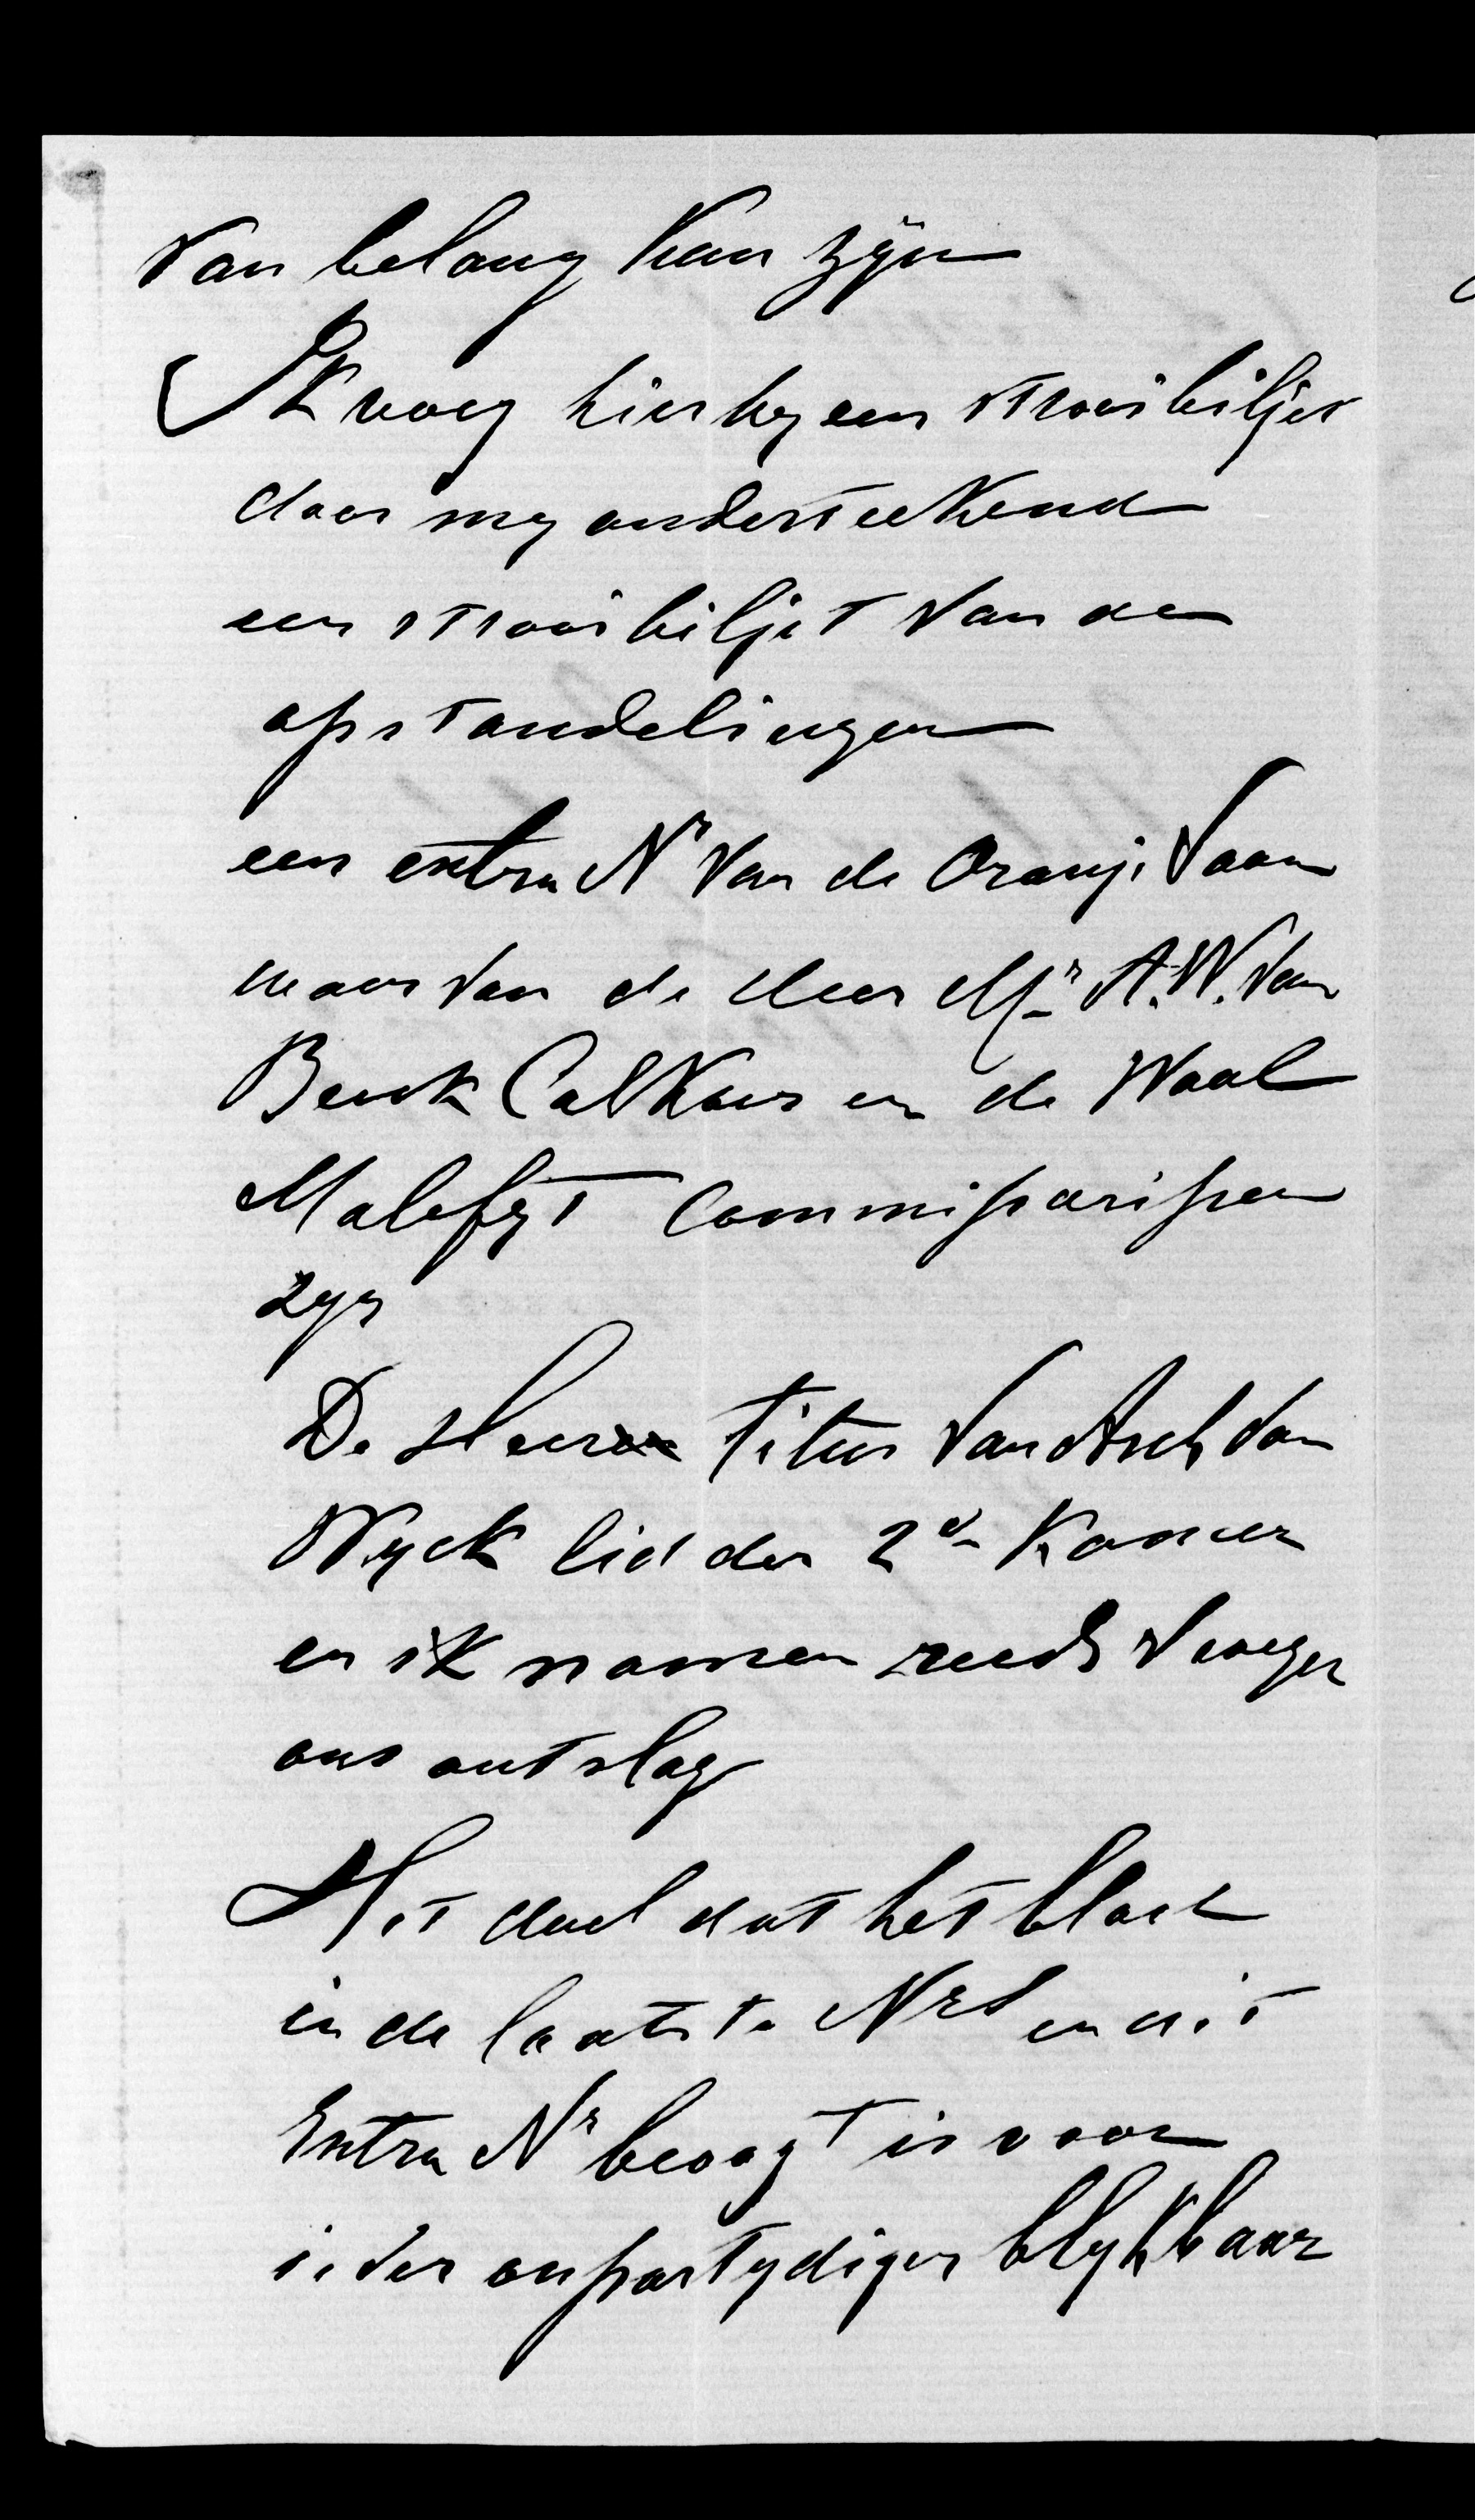 van belang kan zyn
Ik voeg hierby een strooibiljet
door my onderteekend
een strooibiljet van de
opstandelingen
een extra Nr van de Oranje Vaan
waarvan de Heer Mr A.W. van
Beeck Calkoen en de Waal
Malefyt Commissarissen
zyn
De Heer Titus van Asch van
Wyck lid der 2de Kamer
en ik namen reeds vroeger
ons ontslag
Het doel dat het blad
in de laatste Nrs en dit
Extra Nr beoogt is voor
ieder onpartydigen blykbaar